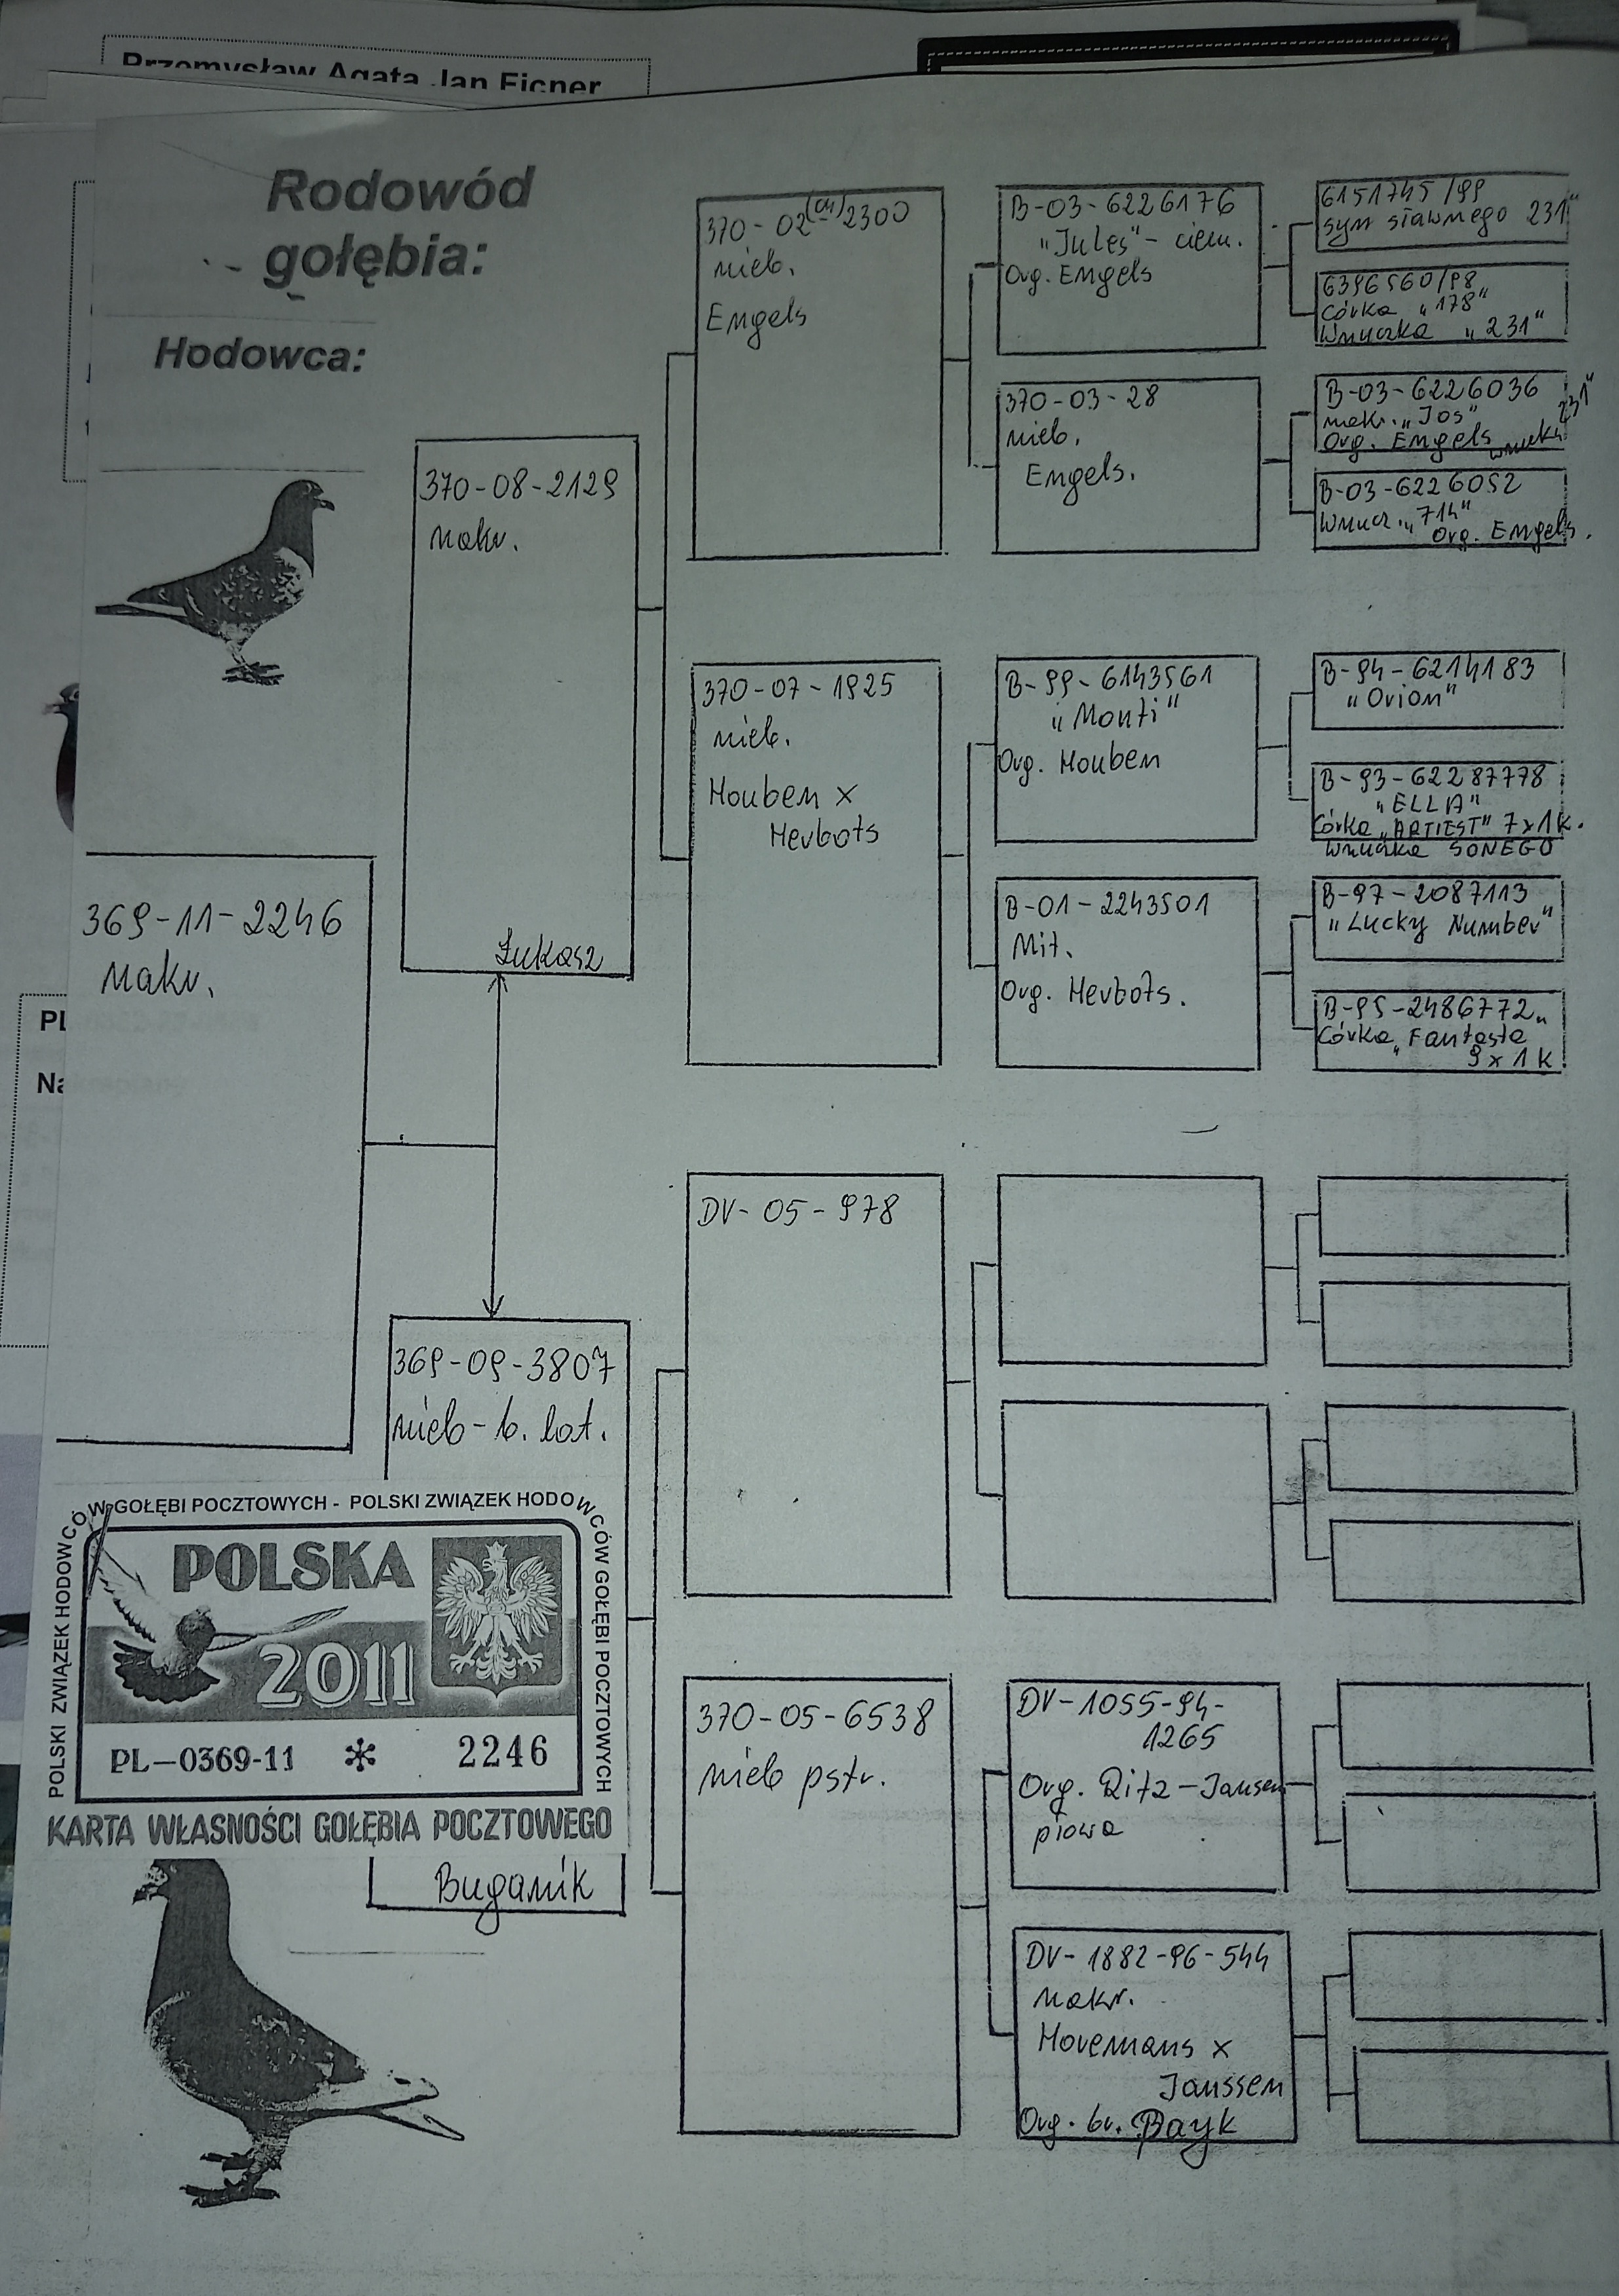 Przemysław Agata Jan Ficner
Rodowód
gołębia:
Hodowca:
369-11-2246
nakr.
PL
Na
370-08-2129
nakr.
Łukasz
369-09-3807
nieb-b. lot.
Buganik
370-02-(04)2300
nieb.
Engels
370-07-1925
nieb.
Houben x
Herbots
DV-05-978
370-05-6538
nieb pstr.
B-03-6226176
"Jules" - ciem.
Org. Engels
370-03-28
nieb.
Engels.
B-99-6143561
"Monti"
Org. Houben
B-01-2243501
Org. Herbots.
DV-1055-94-
1265
Org. Ritz-Jansen
płowa
DV-1882-96-544
nakr.
Horemans x
Janssen
Org. br. Bayk
6151745/99
syn sławnego 231"
6396560/98
córka "178"
Wnuczka "231"
B-03-6226036
nakr. "Jos"
Org. Engels wnuk 231"
B-03-6226052
Wnucz. "714"
Org. Engels.
B-94-6214183
"Orion"
B-93-62287778
"ELLA"
Córka "ARTIEST" 7x1k.
Wnuczka SONEGO
B-97-2087113
"Lucky Number"
B-95-2486772
Córka "Fantasta"
9x1K
POLSKI ZWIĄZEK HODOWCÓW GOŁĘBI POCZTOWYCH - POLSKI ZWIĄZEK HODOWCÓW GOŁĘBI POCZTOWYCH
POLSKA
2011
PL-0369-11 * 2246
KARTA WŁASNOŚCI GOŁĘBIA POCZTOWEGO